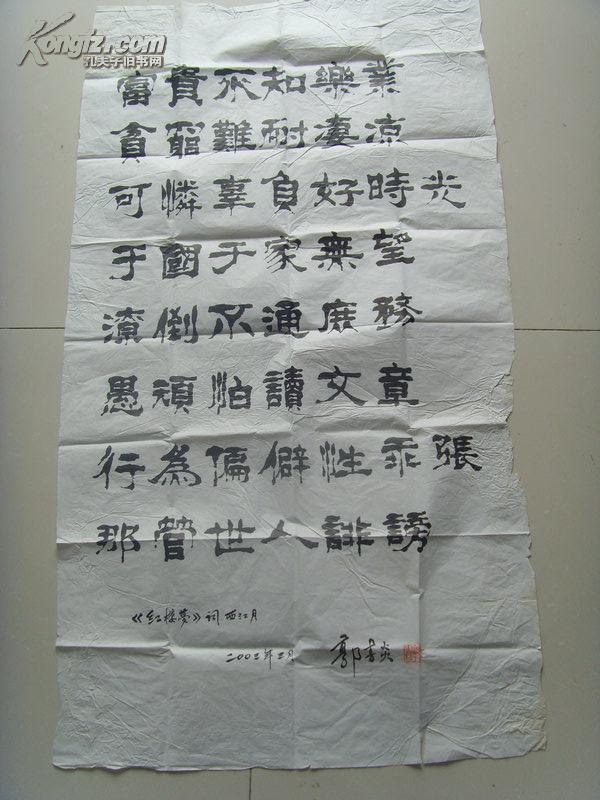 Kongfz.com
孔夫子旧书网
富貴不知樂業
貧窮難耐凄凉
可憐辜負好時光
于國于家無望
潦倒不通庶務
愚頑怕讀文章
行為偏僻性乖張
那管世人誹謗
《红楼梦》词西江月
二〇〇三年三月